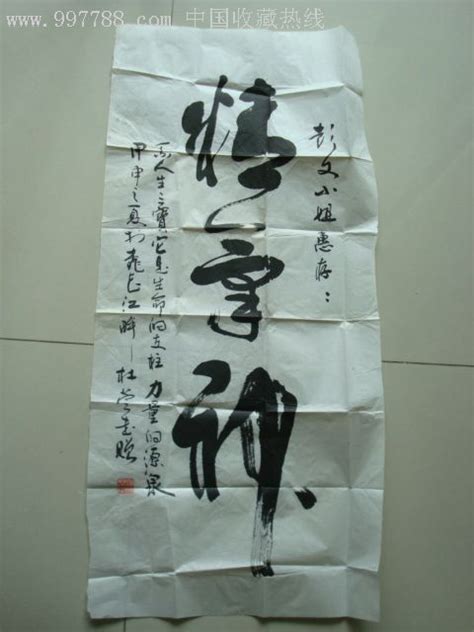 www.997788.com 中国收藏热线
彭文小姐惠存：
精氣神
人生之寶它是生命的支柱 力量的源泉
甲申之夏于江畔 杜赠